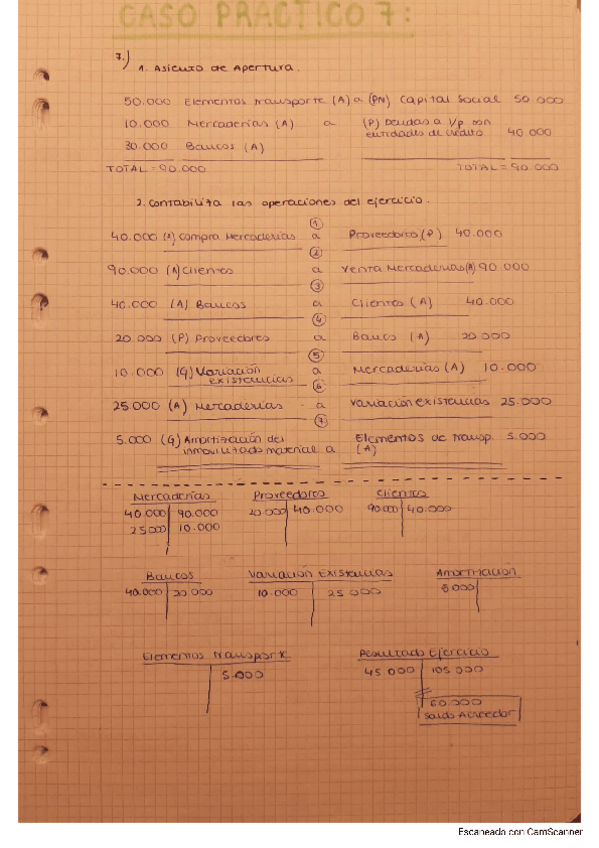 CASO PRACTICO 7:
7.) 1. Asiento de Apertura.
50.000 Elementos transporte (A) a (PN) Capital Social 50.000
10.000 Mercaderías (A) a (P) Deudas a l/p con
entidades de crédito 40.000
30.000 Bancos (A)
TOTAL = 90.000 TOTAL = 90.000
2. Contabiliza las operaciones del ejercicio.
①
40.000 (A) Compra Mercaderías a Proveedores (P) 40.000
②
90.000 (A) Clientes a Venta Mercaderías 90.000
③
40.000 (A) Bancos a Clientes (A) 40.000
④
20.000 (P) Proveedores a Banco (A) 20.000
⑤
10.000 (G) Variación a Mercaderías (A) 10.000
existencias
⑥
25.000 (A) Mercaderías a Variación existencias 25.000
⑦
5.000 (G) Amortización del Elementos de Transp. 5.000
inmovilizado material a (A)
Mercaderías Proveedores Clientes
40.000 90.000 20.000 40.000 90.000 40.000
25.000 10.000
Bancos Variación Existencias Amortización
40.000 20.000 10.000 25.000 5.000
Elementos Transporte Resultado Ejercicio
5.000 45.000 105.000
60.000
Saldo Acreedor
Escaneado con CamScanner